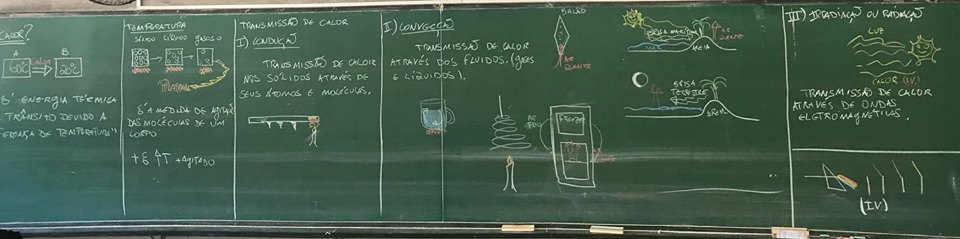 CALOR?
A
B
CALOR
60°C
20°C
É ENERGIA TÉRMICA
TRÂNSITO DEVIDO A
ERENÇA DE TEMPERATURA"
TEMPERATURA
SÓLIDO LÍQUIDO GASOSO
PLASMA
É A MEDIDA DE AGITAÇÃO
DAS MOLÉCULAS DE UM
CORPO
+ E ↑T +AGITADO
TRANSMISSÃO DE CALOR
I) CONDUÇÃO
TRANSMISSÃO DE CALOR
NOS SÓLIDOS ATRAVÉS DE
SEUS ÁTOMOS E MOLÉCULAS.
II) CONVECÇÃO
TRANSMISSÃO DE CALOR
ATRAVÉS DOS FLUIDOS. (GASES
E LÍQUIDOS).
BALÃO
AR
QUENTE
AR
FREEZER
BRISA MARÍTIMA
AR
QUENTE
MAR
AREIA
BRISA
TERRESTRE
III) IRRADIAÇÃO OU RADIAÇÃO
LUZ
CALOR (I.V.)
TRANSMISSÃO DE CALOR
ATRAVÉS DE ONDAS
ELETROMAGNÉTICAS.
(I.V)